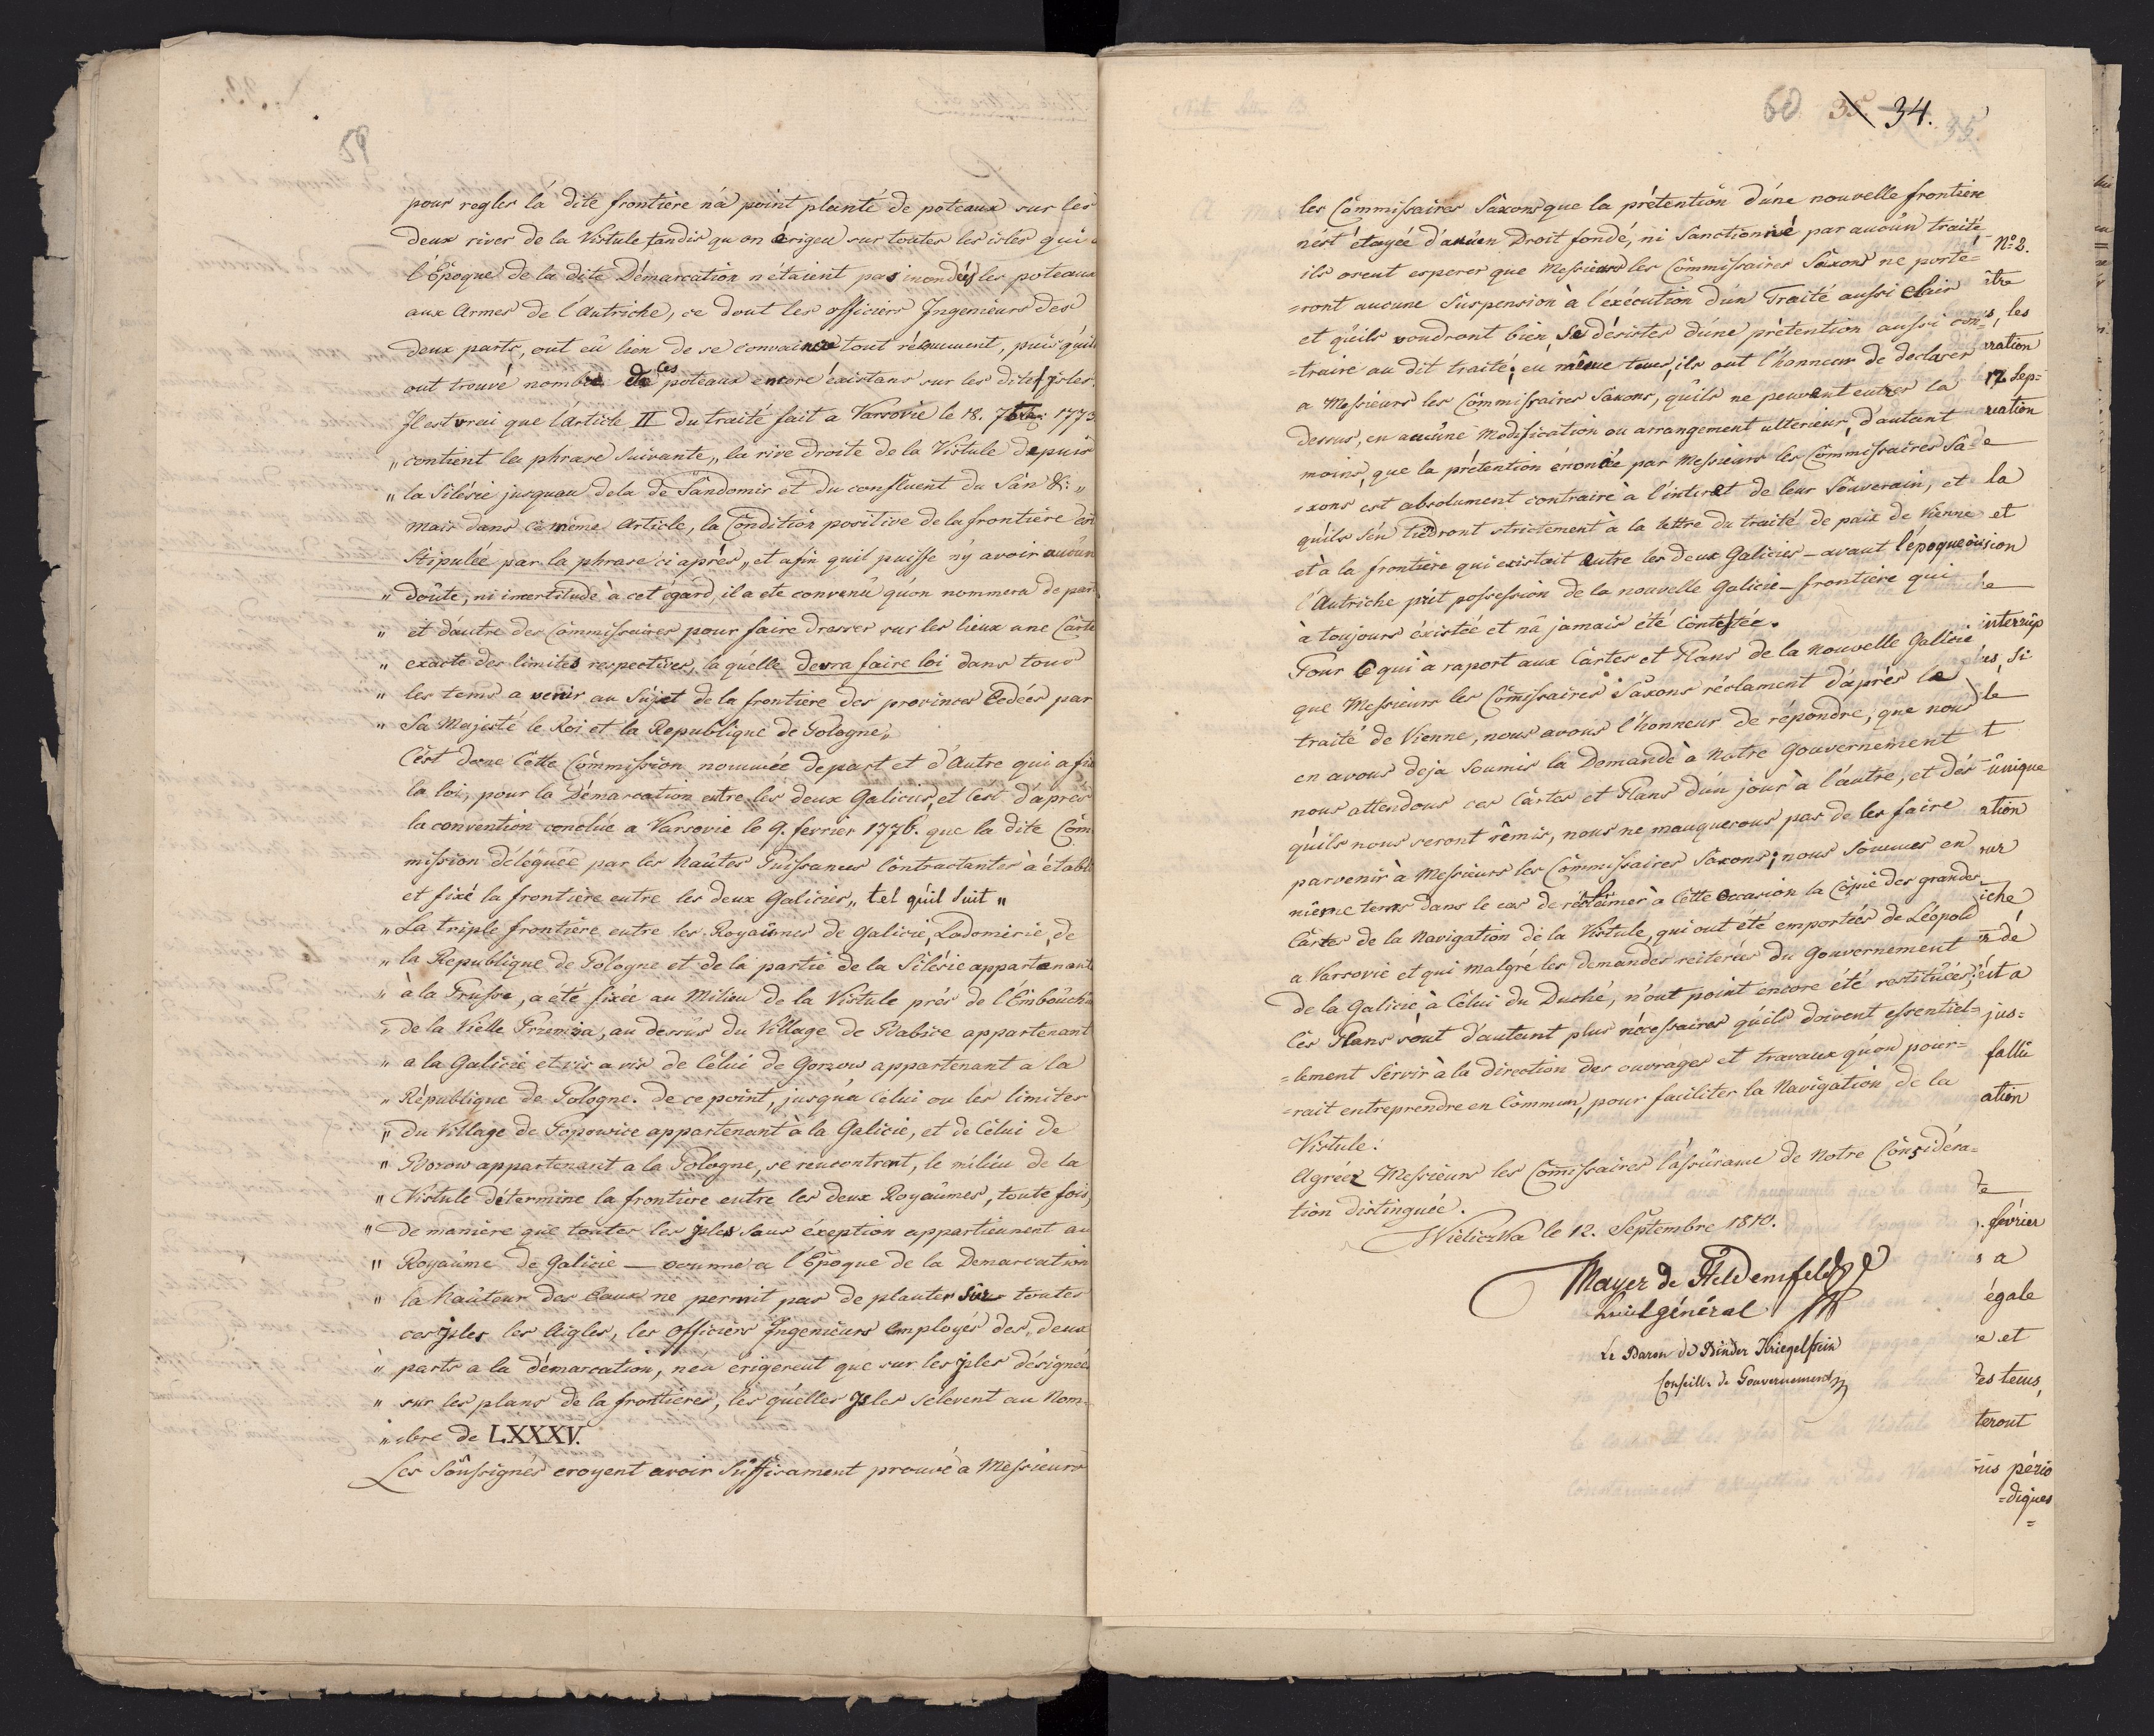 59
pour regler la dite frontiere n'a point planté de poteaux sur les
deux rives de la Vistule tandis qu on érigea sur toutes les isles qui
l'Époque de la dite Démarcation n'étaient pas inondées les poteaux
aux Armes de l'Autriche, ce dont les officiers Ingenieurs des
deux parts, ont eû lieu de se convaincre tout récemment, puis qu'ils
ont trouvé nombre de ces poteaux encore éxistans sur les dites isles.
Il est vrai que l'article II du traité fait a Varsovie le 18. 7bre: 1773.
„ contient la phrase suivante „ la rive droite de la Vistule depuis
„ la Silésie jusquau dela de Sandomir et du confluent du San &: „
mais dans ce même Article, la Condition positive de la frontière est
Stipulée par la phrase ci après „ et afin quil puisse n'y avoir aucun
„ doûte, ni incertitude à cet égard, il a ete convenû qu'on nommera de part
„ et d'autre des Commissaires pour faire dresser sur les lieux une Carte
„ exacte des limites respectives, la qu'elle devra faire loi dans tous
„ les tems a venir au Sujet de la frontiere des provinces Cedées par
„ Sa Majesté le Roi et la Republique de Pologne „
C'est donc Cette Commission nommée de part et d'Autre qui a fix
la loi, pour la Démarcation entre les deux Galicies, et C'est d'après
la convention conclüe a Varsovie le 9. fevrier 1776. que la dite Com
mission déléguée par les haûtes Puissances Contractantes à établi
et fixé la frontière entre les deux Galicies „ tel qu'il Suit „
„ La triple frontière entre les Royaûmes de Galicie, Lodomerie, de
„ la Republique de Pologne et de la partie de la Silésie appartenante
„ à la Prusse, a été fixée au Milieu de la Vistule près de l'Embouchu
„ de la Vielle Przemsza, au dessus du Village de Babice appartenant
„ a la Galicie et vis a vis de Célui de Gorzow appartenant a la
„ République de Pologne. de ce point, jusqu'a Celui ou les limites
„ du Village de Popowice appartenant à la Galicie, et de Célui de
„ Borow appartenant a la Pologne, se rencontrent, le milieu de la
„ Vistule détermine la frontière entre les deux Royaûmes, toute fois,
„ de maniere que toutes les isles sans éxeption appartiennent au
„ Royaûme de Galicie — comme a l'Époque de la Demarcation
„ la haûteur des Eaux ne permit pas de planter Sûr toutes
ces isles les Aigles, les Officiers Ingenieurs employés des deux
„ parts a la démarcation, n'en érigerent que sur les isles désignées
„ sur les plans de la frontieres, les qu'elles isles s'élevent au Nom-
„ bre de LXXXV.
Les Soûssignés croyent avoir Suffisament prouvé a Messieurs
60 35. 34.
35.
les Commissaires Saxons que la prétention d'une nouvelle frontiere
n'est étayée d'aucun Droit fondé, ni Sanctionné par aucûn traité
ils osent esperer que Messieurs les Commissaires Saxons ne porte=
=ront aucune Suspension à l'éxécution d'un Traité aussi Clair
et qu'ils voudront bien se désister d'une prétention aussi con=
=traire au dit traité; en même tems, ils ont l'honneur de declarer
a Messieurs les Commissaires Saxons, qu'ils ne peuvent entrer la
dessus, en aucûne Modification ou arrangement ulterieur, d'autant
moins, que la prétention énoncée par Messieurs les Commissaires Sa=
=xons est absolument contraire à l'interet de leur Souverain, et
qu'ils s'en tiedront strictement à la lettre du traité de paix de Vienne
et à la frontière qui existait entre les deux Galicies — avant l'époque où
l'Autriche prit possession de la nouvelle Galicie — frontière qui
à toujours éxistée et n'a jamais été Contestée.
Pour Ce qui à raport aux Cartes et Plans de la Nouvelle Galicie
que Messieurs les Comissaires Saxons réclament d'après le
traité de Vienne, nous avons l'honneur de répondre, que nous
en avons deja Soumis la Demande à Notre Gouvernement
nous attendons ces Cartes et Plans d'un jour à l'autre, et dès
qu'ils nous seront rêmis, nous ne manquerons pas de les faire
parvenir à Messieurs les Commissaires Saxons; nous Sommes en
même tems dans le cas de réclamer à Cette Occasion la Copie des grandes
Cartes de la Navigation de la Vistule, qui ont été emportées de Léopold
a Varsovie et qui malgré les demandes reiterées du Gouvernement
de la Galicie à Célui du Duché, n'ont point encore été restitûées;
Ces Plans sont d'autant plus nécessaires qu'ils doivent essentiel=
=lement Servir à la direction des ouvrages et travaux qu'on pour=
=rait entreprendre en Commun, pour faciliter la Navigation de la
Vistule.
Agréez Messieurs les Comissaires l'assûrance de Notre Considéra=
tion distinguée.
Wieliczka le 12. Septembre 1810.
Mayer de Heldensfeld
général
Le Baron de Binder Kriegelstein
Conseill. de Gouvernement
N° 2.
être
, les
ration
17 Sep=
rcation
de
la
et
ision
he
interrûp
es, Si
le
t
ûnique
ation
sur
iche
n dé
éit a
jus=
fallû
ation
de
. février
s a
égale
e et
des tems,
teront
ns pério
=diques
=